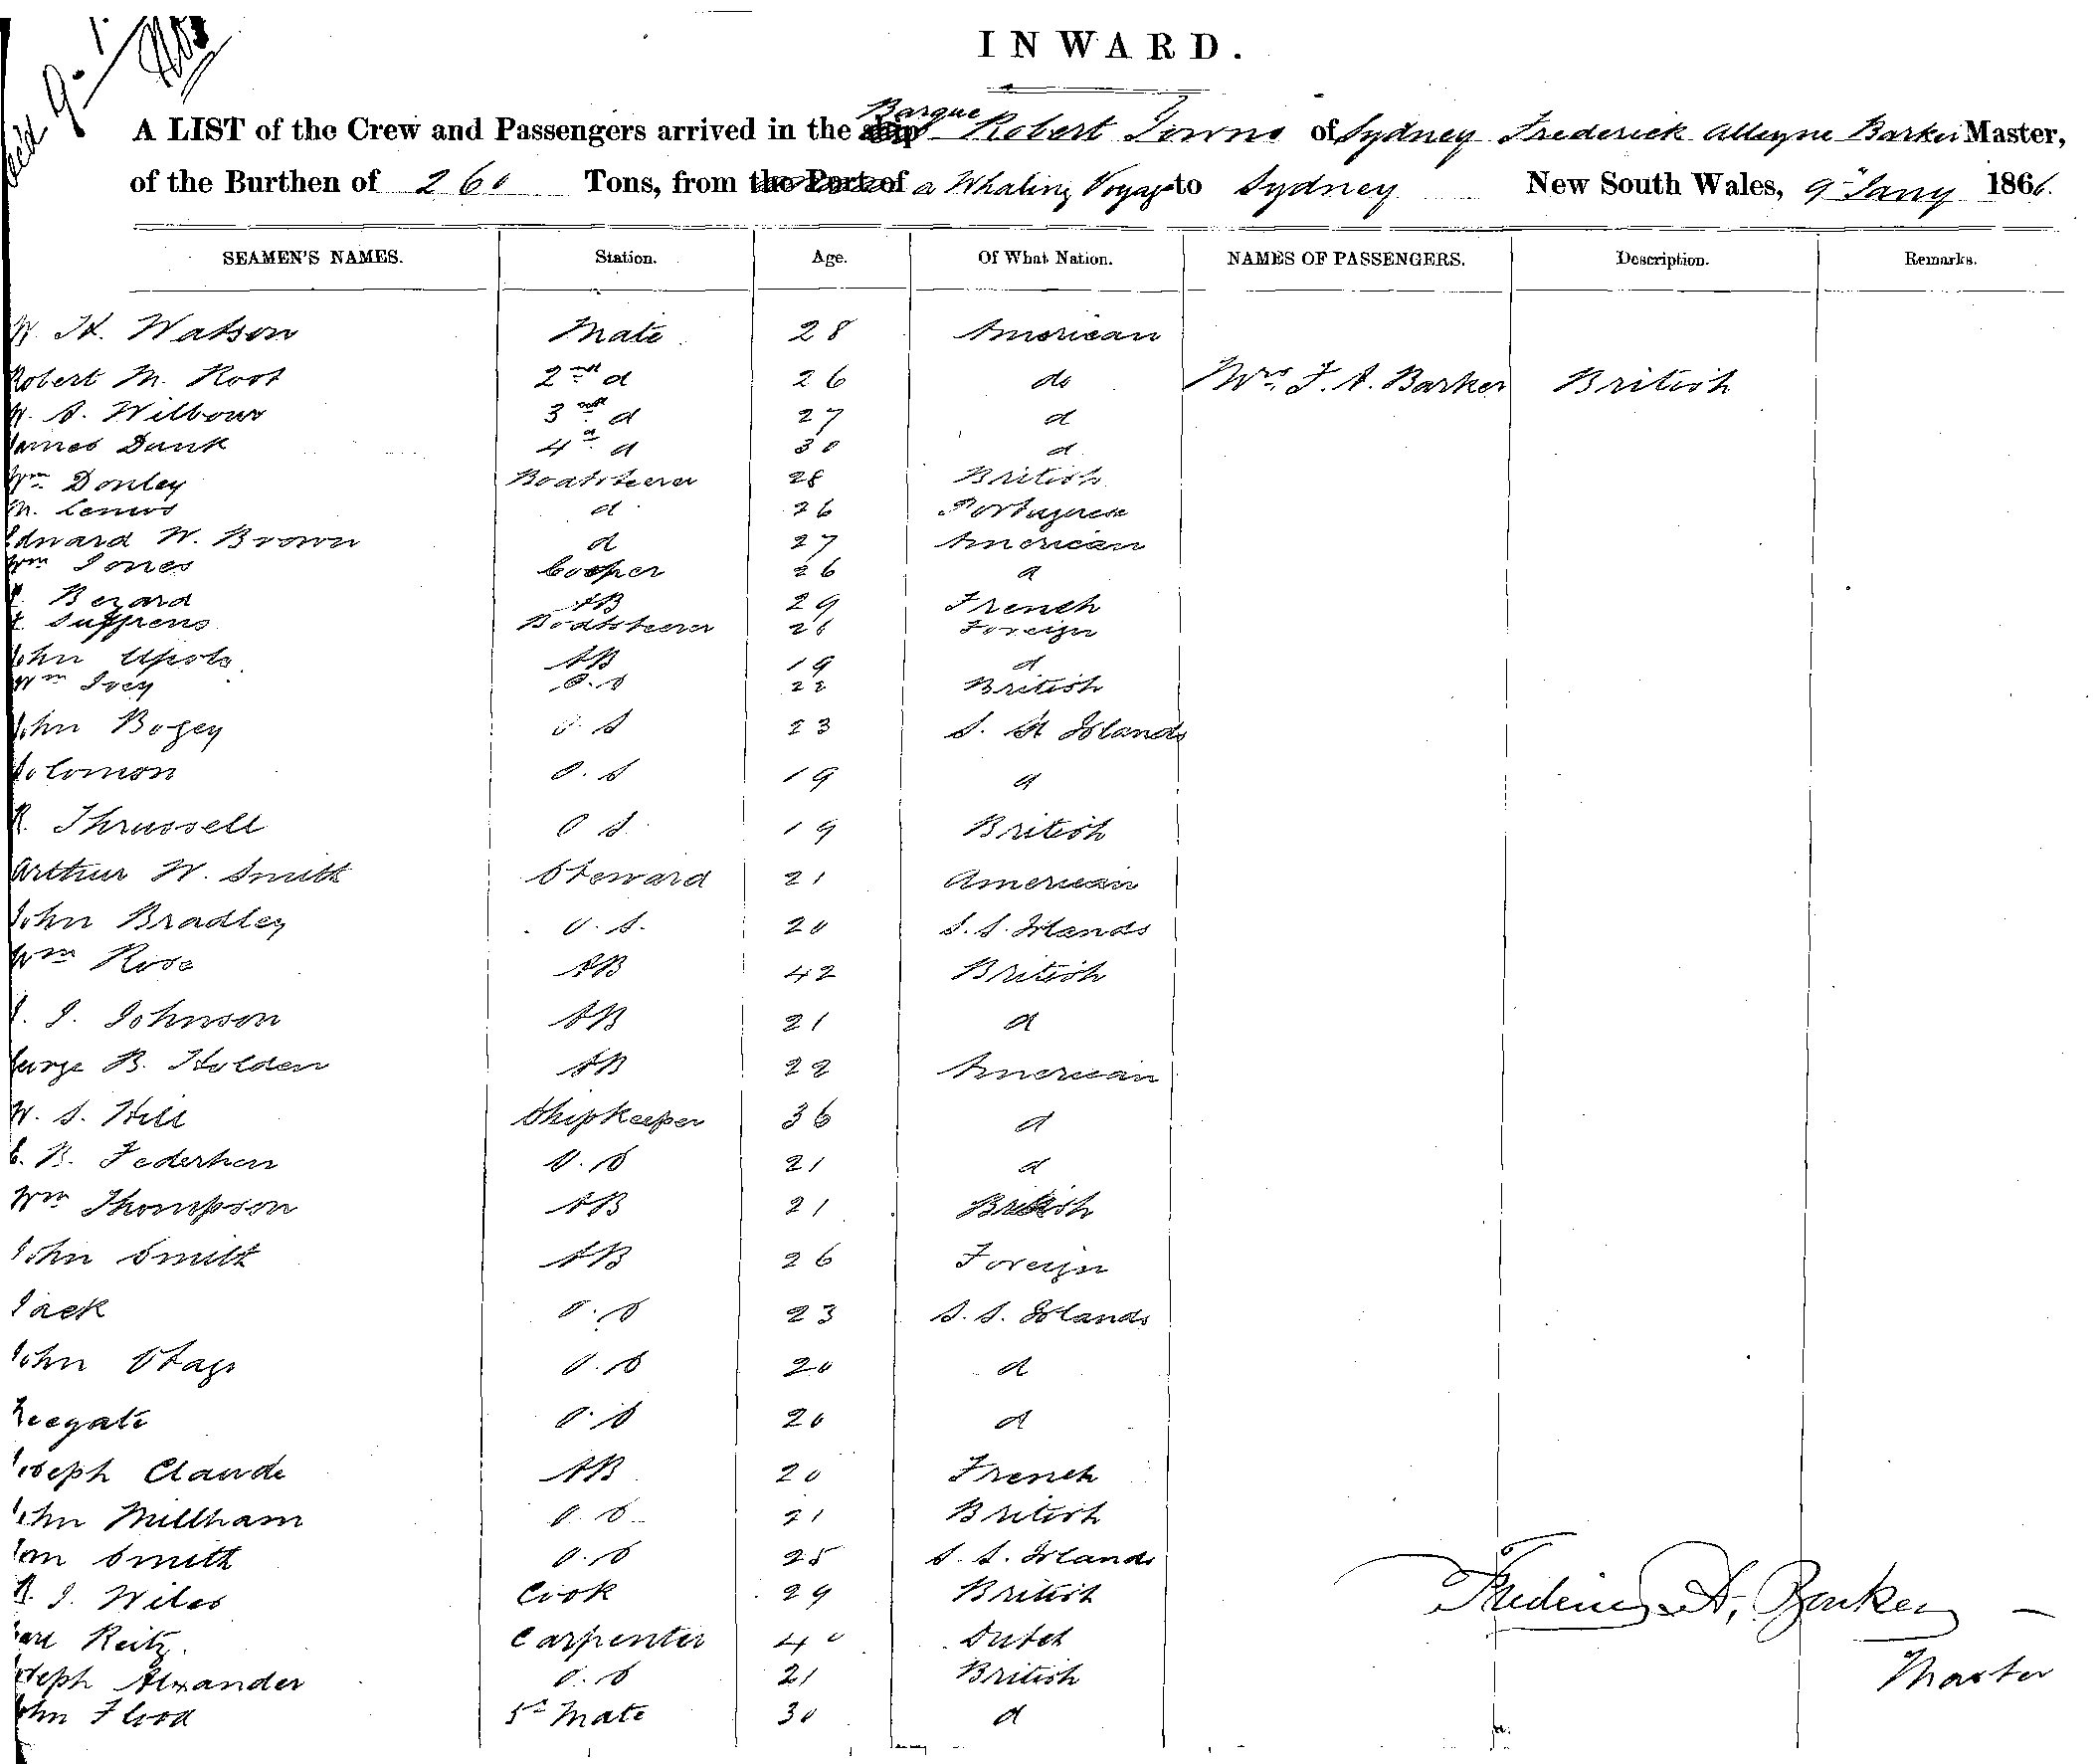 INWARD.
A LIST of the Crew and Passengers arrived in the Barque Robert Towns of Sydney Frederick Alleyne Barker Master,
of the Burthen of 260 Tons, from the Port of a Whaling Voyage to Sydney New South Wales, 9 Jany 1866.
SEAMEN'S NAMES. Station. Age. Of What Nation. NAMES OF PASSENGERS. Description. Remarks.
W. H. Watson Mate 28 American
Robert M. Root 2nd d 26 do Mrs. F. A. Barker British
W. S. Wilbour 3rd d 27 d
James Dunk 4th d 30 d
Wm Donley Boatsteerer 28 British
M. d 26 Portuguese
Edward W. Brown d 27 American
Wm Jones Cooper 26 d
Bezard AB 29 French
Suffrens Boatsteerer 26 Foreign
John AB 19 d
Wm Ivey O.S 22 British
John Bogey O.S 23 S. St Islands
Solomon O.S 19 d
R. Thrussell O S. 19 British
Arthur W. Smith Steward 21 American
John Bradley O.S. 20 S.S. Islands
Wm Rose AB 42 British
J. Johnson AB 21 d
George B. Holden AB 22 American
W. S. Hill Shipkeeper 36 d
C. B. Federhen O.S 21 d
Wm Thompson AB 21 British
John Smith AB 26 Foreign
Jack O.S 23 S.S. Islands
John Otago O.S 20 d
Keegate O.S 20 d
Joseph Claude AB 20 French
John Millham O.S 21 British
Tom Smith O.S 25 S.S. Islands
R. J. Wiles Cook 29 British
Carl Reitz. Carpenter 40 Dutch
Joseph Alxander O.S 21 British
John Flood 5th Mate 30 d
Frederick A. Barker
Master